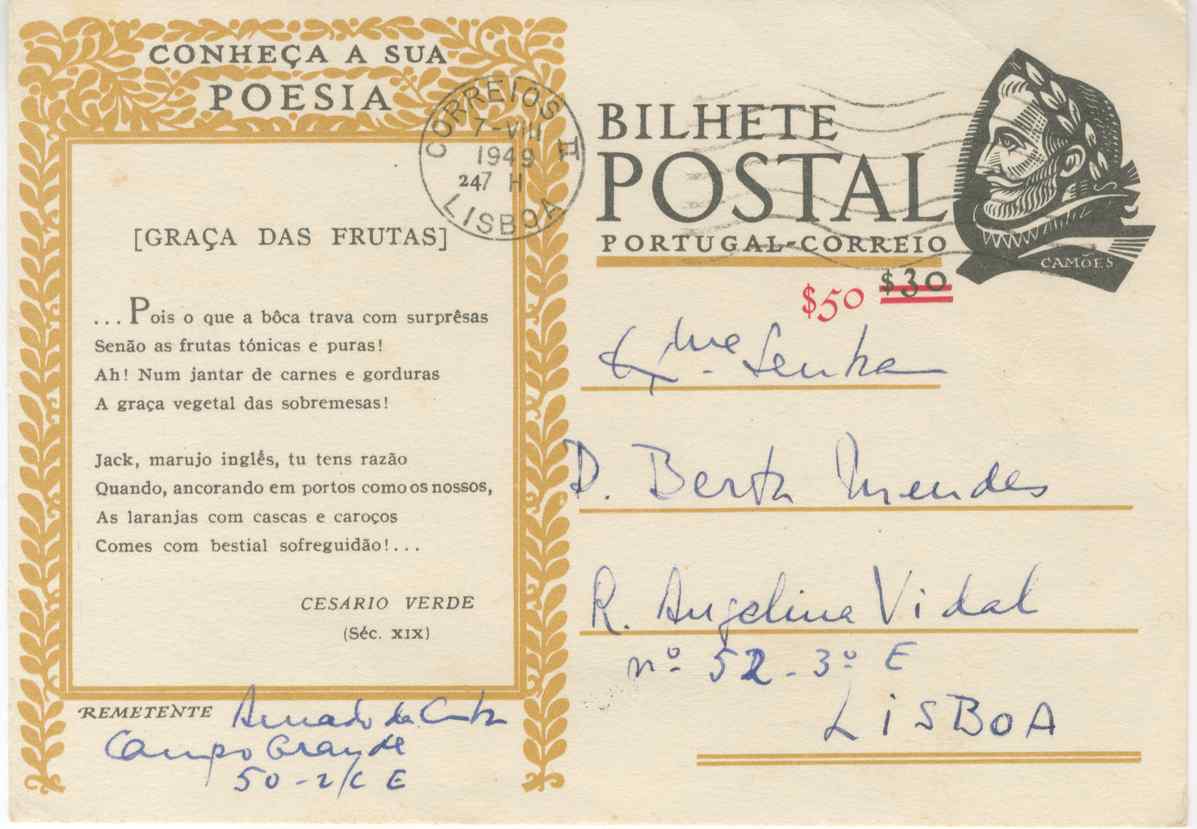 CONHEÇA A SUA
POESIA
[GRAÇA DAS FRUTAS]
...Pois o que a bôca trava com surprêsas
Senão as frutas tónicas e puras!
Ah! Num jantar de carnes e gorduras
A graça vegetal das sobremesas!
Jack, marujo inglês, tu tens razão
Quando, ancorando em portos como os nossos,
As laranjas com cascas e caroços
Comes com bestial sofreguidão!...
CESARIO VERDE
(Séc. XIX)
REMETENTE Armado da
Campo Grande
50-2/C E
CORREIOS II
7-VIII
1949
247 H
LISBOA
BILHETE
POSTAL
PORTUGAL-CORREIO
CAMÕES
$50 $30
Exma. Senhora
D. Berta Mendes
R. Angelina Vidal
nº 52-3º E
LISBOA